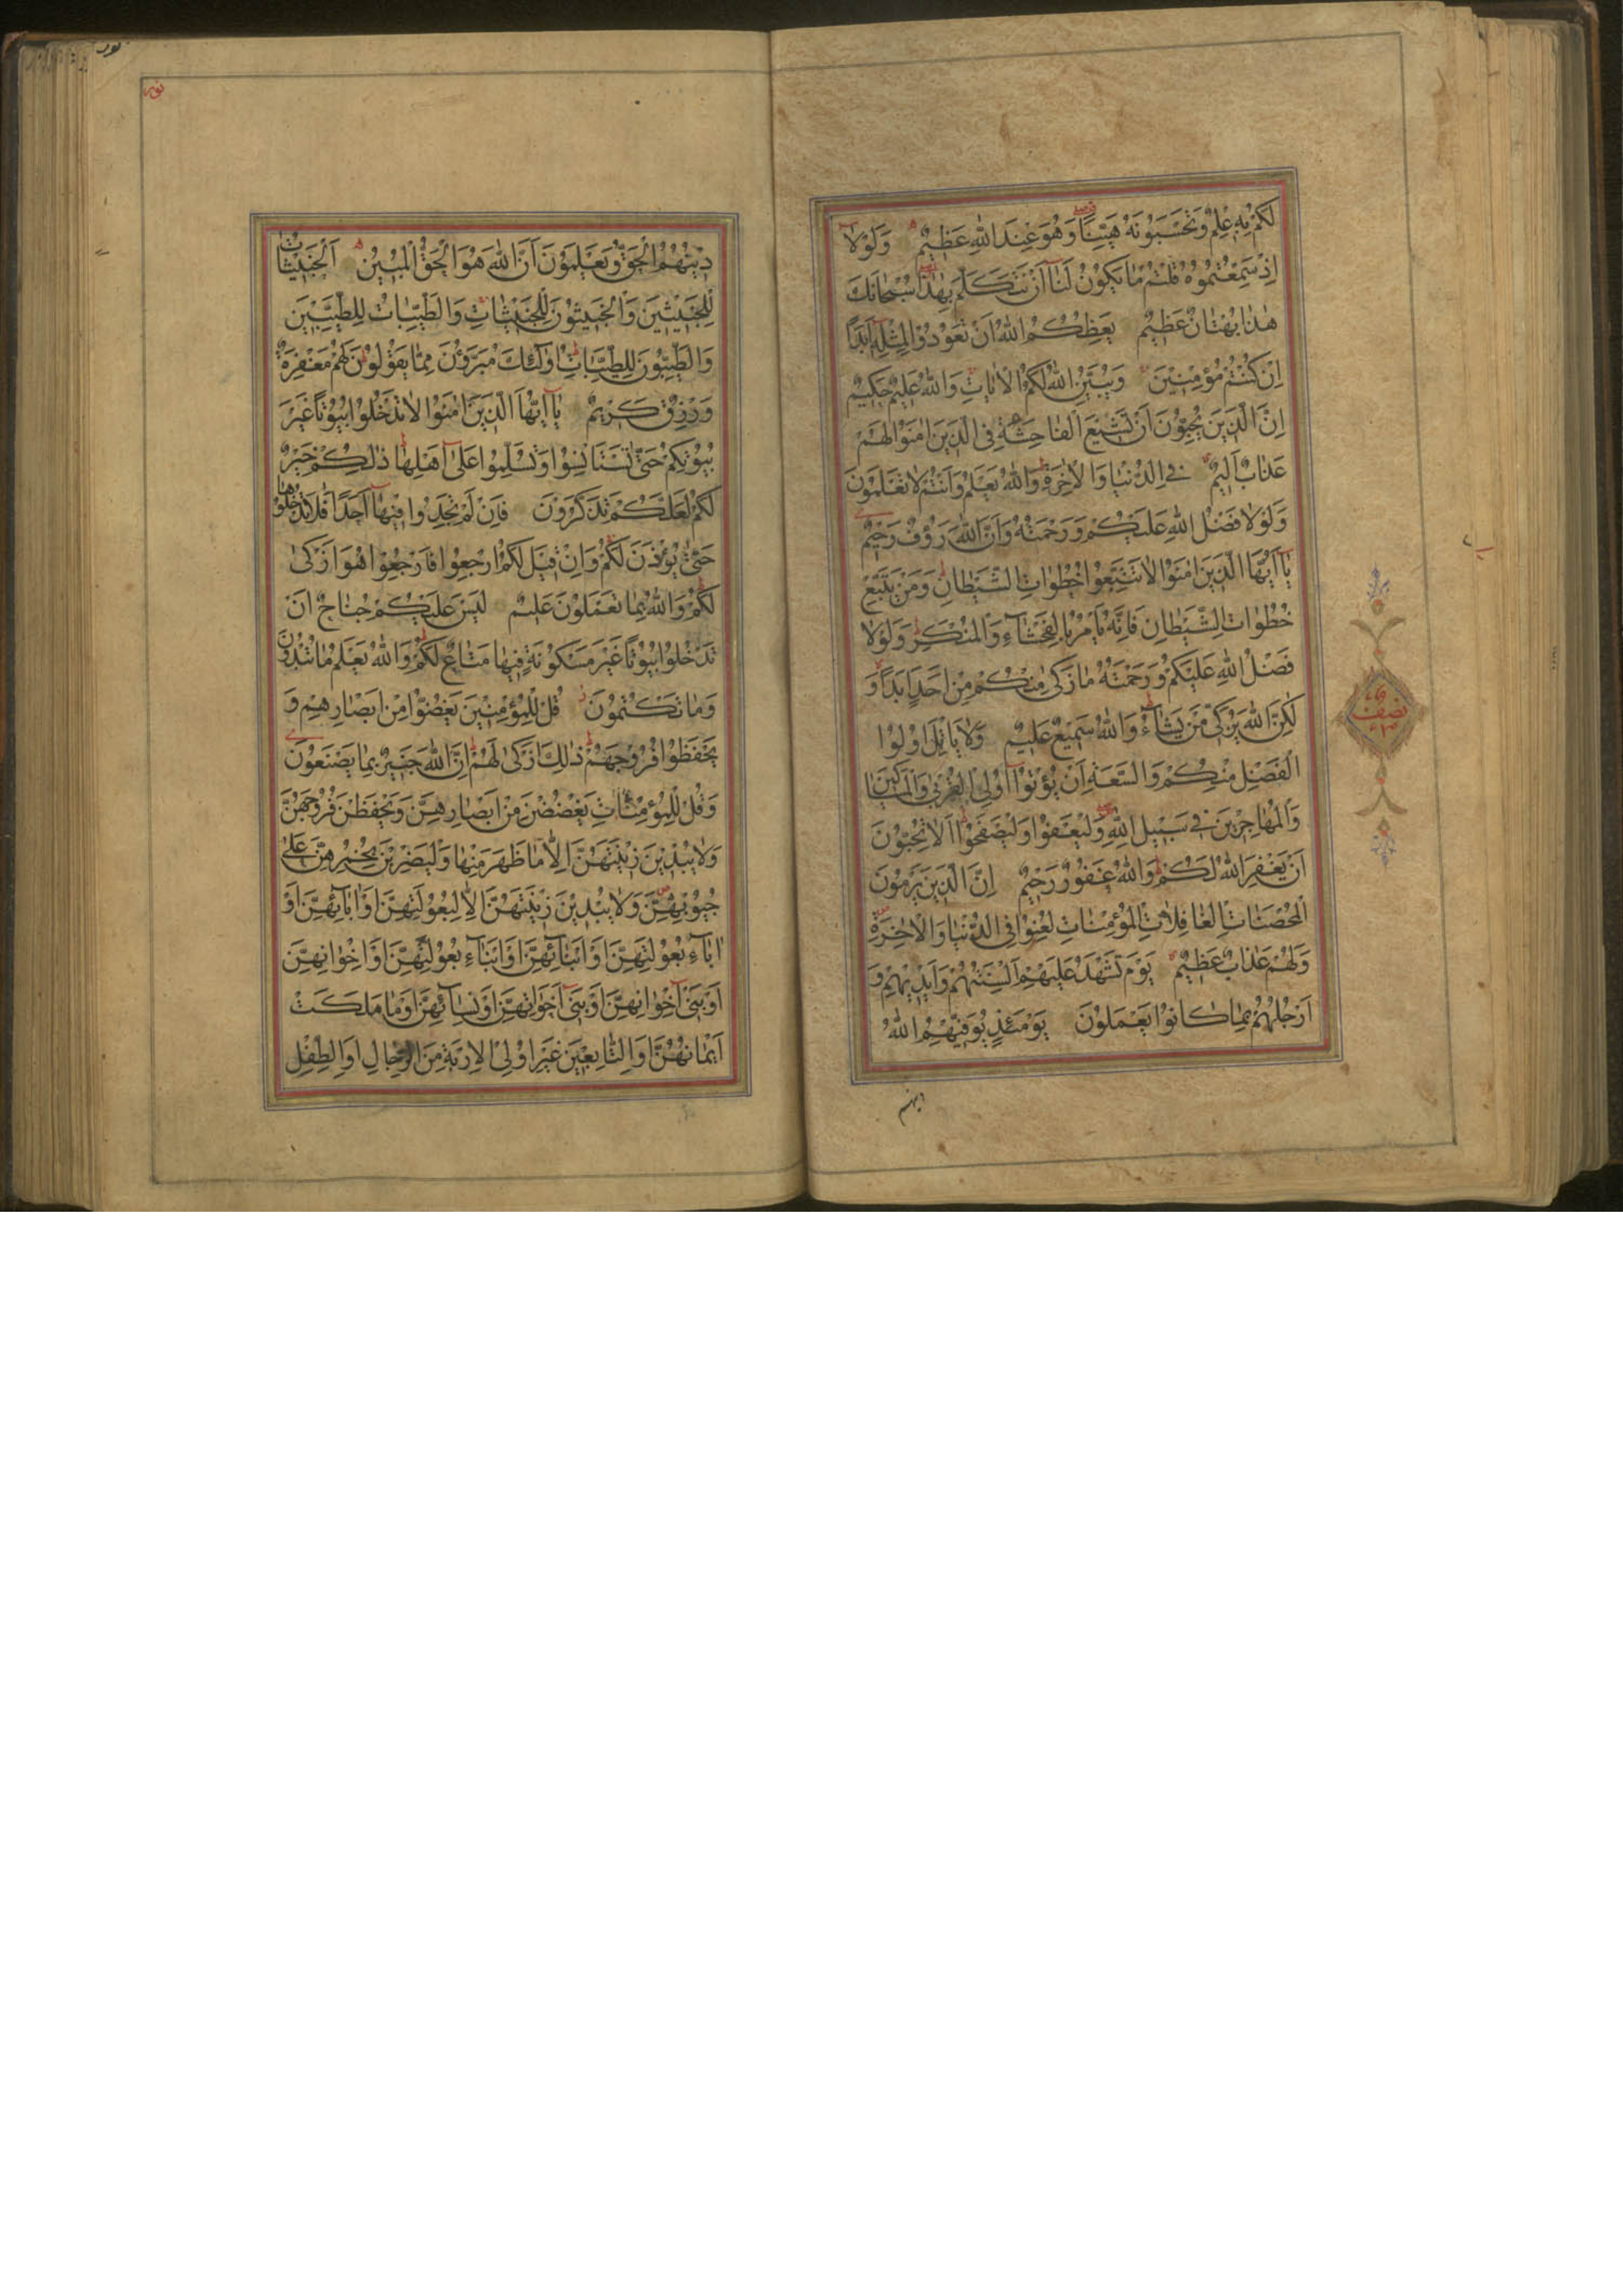 لَكُمْ بِهِ عِلْمٌ وَتَحْسَبُونَهُ هَيِّنًا وَهُوَ عِنْدَ اللّٰهِ عَظِيمٌ وَلَوْلَا
اِذْ سَمِعْتُمُوهُ قُلْتُمْ مَا يَكُونُ لَنَا اَنْ نَتَكَلَّمَ بِهٰذَا سُبْحَانَكَ
هٰذَا بُهْتَانٌ عَظِيمٌ يَعِظُكُمُ اللّٰهُ اَنْ تَعُودُوا لِمِثْلِهِ اَبَدًا
اِنْ كُنْتُمْ مُؤْمِنِينَ وَيُبَيِّنُ اللّٰهُ لَكُمُ الْاٰيَاتِ وَاللّٰهُ عَلِيمٌ حَكِيمٌ
اِنَّ الَّذِينَ يُحِبُّونَ اَنْ تَشِيعَ الْفَاحِشَةُ فِي الَّذِينَ اٰمَنُوا لَهُمْ
عَذَابٌ اَلِيمٌ فِي الدُّنْيَا وَالْاٰخِرَةِ وَاللّٰهُ يَعْلَمُ وَاَنْتُمْ لَا تَعْلَمُونَ
وَلَوْلَا فَضْلُ اللّٰهِ عَلَيْكُمْ وَرَحْمَتُهُ وَاَنَّ اللّٰهَ رَؤُفٌ رَحِيمٌ
يَا اَيُّهَا الَّذِينَ اٰمَنُوا لَا تَتَّبِعُوا خُطُوَاتِ الشَّيْطَانِ وَمَنْ يَتَّبِعْ
خُطُوَاتِ الشَّيْطَانِ فَاِنَّهُ يَأْمُرُ بِالْفَحْشَاءِ وَالْمُنْكَرِ وَلَوْلَا
فَضْلُ اللّٰهِ عَلَيْكُمْ وَرَحْمَتُهُ مَا زَكٰى مِنْكُمْ مِنْ اَحَدٍ اَبَدًا وَ
لٰكِنَّ اللّٰهَ يُزَكِّي مَنْ يَشَاءُ وَاللّٰهُ سَمِيعٌ عَلِيمٌ وَلَا يَأْتَلِ اُولُوا
الْفَضْلِ مِنْكُمْ وَالسَّعَةِ اَنْ يُؤْتُوا اُولِي الْقُرْبٰى وَالْمَسَاكِينَ
وَالْمُهَاجِرِينَ فِي سَبِيلِ اللّٰهِ وَلْيَعْفُوا وَلْيَصْفَحُوا اَلَا تُحِبُّونَ
اَنْ يَغْفِرَ اللّٰهُ لَكُمْ وَاللّٰهُ غَفُورٌ رَحِيمٌ اِنَّ الَّذِينَ يَرْمُونَ
الْمُحْصَنَاتِ الْغَافِلَاتِ الْمُؤْمِنَاتِ لُعِنُوا فِي الدُّنْيَا وَالْاٰخِرَةِ
وَلَهُمْ عَذَابٌ عَظِيمٌ يَوْمَ تَشْهَدُ عَلَيْهِمْ اَلْسِنَتُهُمْ وَاَيْدِيهِمْ وَ
اَرْجُلُهُمْ بِمَا كَانُوا يَعْمَلُونَ يَوْمَئِذٍ يُوَفِّيهِمُ اللّٰهُ
دينهم
نصف
نور
نور
دِينَهُمُ الْحَقَّ وَيَعْلَمُونَ اَنَّ اللّٰهَ هُوَ الْحَقُّ الْمُبِينُ اَلْخَبِيثَاتُ
لِلْخَبِيثِينَ وَالْخَبِيثُونَ لِلْخَبِيثَاتِ وَالطَّيِّبَاتُ لِلطَّيِّبِينَ
وَالطَّيِّبُونَ لِلطَّيِّبَاتِ اُولٰئِكَ مُبَرَّؤُنَ مِمَّا يَقُولُونَ لَهُمْ مَغْفِرَةٌ
وَرِزْقٌ كَرِيمٌ يَا اَيُّهَا الَّذِينَ اٰمَنُوا لَا تَدْخُلُوا بُيُوتًا غَيْرَ
بُيُوتِكُمْ حَتّٰى تَسْتَأْنِسُوا وَتُسَلِّمُوا عَلٰى اَهْلِهَا ذٰلِكُمْ خَيْرٌ
لَكُمْ لَعَلَّكُمْ تَذَكَّرُونَ فَاِنْ لَمْ تَجِدُوا فِيهَا اَحَدًا فَلَا تَدْخُلُوهَا
حَتّٰى يُؤْذَنَ لَكُمْ وَاِنْ قِيلَ لَكُمُ ارْجِعُوا فَارْجِعُوا هُوَ اَزْكٰى
لَكُمْ وَاللّٰهُ بِمَا تَعْمَلُونَ عَلِيمٌ لَيْسَ عَلَيْكُمْ جُنَاحٌ اَنْ
تَدْخُلُوا بُيُوتًا غَيْرَ مَسْكُونَةٍ فِيهَا مَتَاعٌ لَكُمْ وَاللّٰهُ يَعْلَمُ مَا تُبْدُونَ
وَمَا تَكْتُمُونَ قُلْ لِلْمُؤْمِنِينَ يَغُضُّوا مِنْ اَبْصَارِهِمْ وَ
يَحْفَظُوا فُرُوجَهُمْ ذٰلِكَ اَزْكٰى لَهُمْ اِنَّ اللّٰهَ خَبِيرٌ بِمَا يَصْنَعُونَ
وَقُلْ لِلْمُؤْمِنَاتِ يَغْضُضْنَ مِنْ اَبْصَارِهِنَّ وَيَحْفَظْنَ فُرُوجَهُنَّ
وَلَا يُبْدِينَ زِينَتَهُنَّ اِلَّا مَا ظَهَرَ مِنْهَا وَلْيَضْرِبْنَ بِخُمُرِهِنَّ عَلٰى
جُيُوبِهِنَّ وَلَا يُبْدِينَ زِينَتَهُنَّ اِلَّا لِبُعُولَتِهِنَّ اَوْ اٰبَائِهِنَّ اَوْ
اٰبَاءِ بُعُولَتِهِنَّ اَوْ اَبْنَائِهِنَّ اَوْ اَبْنَاءِ بُعُولَتِهِنَّ اَوْ اِخْوَانِهِنَّ
اَوْ بَنِي اِخْوَانِهِنَّ اَوْ بَنِي اَخَوَاتِهِنَّ اَوْ نِسَائِهِنَّ اَوْ مَا مَلَكَتْ
اَيْمَانُهُنَّ اَوِ التَّابِعِينَ غَيْرِ اُولِي الْاِرْبَةِ مِنَ الرِّجَالِ اَوِ الطِّفْلِ